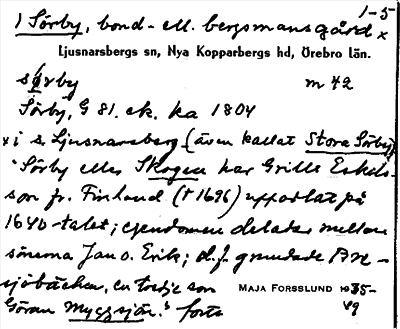 1-5
1 Sörby, bond- ell. bergsmansgård x
Ljusnarsbergs sn, Nya Kopparbergs hd, Örebro län.
sörby m 42
Sörby, G 81. ek. ka 1804
x i s. Ljusnarsberg (även kallat Stora Sörby)
"Sörby eller Skogen har Grills Eskils-
son fr. Finland († 1696) upptagit på
1640-talet; egendomen delades mellan
sönerna Jan o. Erik; d.f. grundade
sjöbäcken, en tredje son
MAJA FORSSLUND 1935-
49
Göran Myggsjön." forts